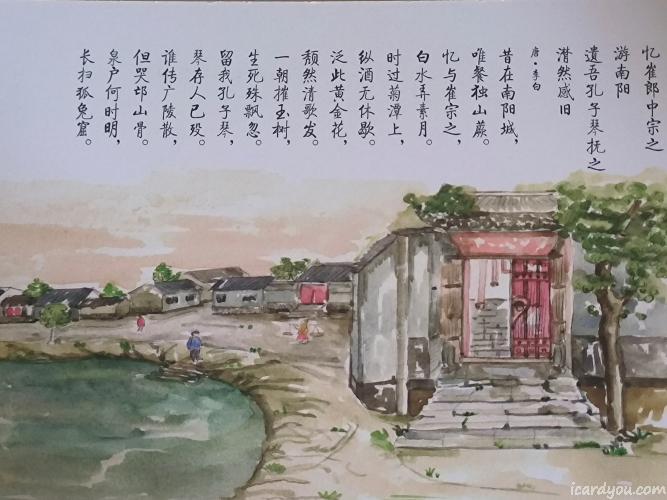 忆崔郎中宗之
游南阳
遗吾孔子琴抚之
潸然感旧
唐·李白
昔在南阳城，
唯餐独山蕨。
忆与崔宗之，
白水弄素月。
时过菊潭上，
纵酒无休歇。
泛此黄金花，
颓然清歌发。
一朝摧玉树，
生死殊飘忽。
留我孔子琴，
琴存人已殁。
谁传广陵散，
但哭邙山骨。
泉户何时明，
长扫狐兔窟。
icardyou.com